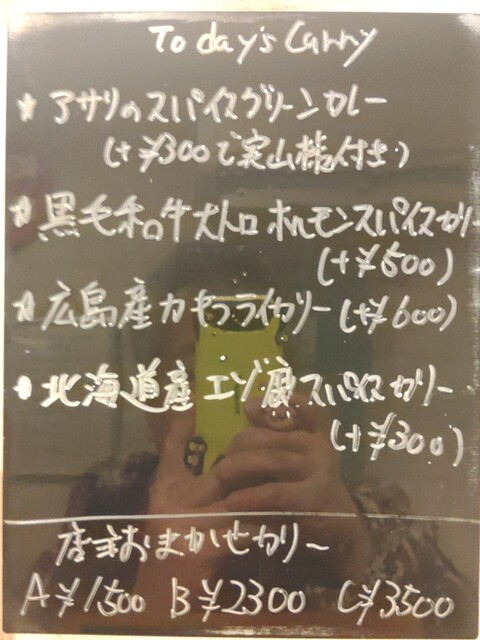 Today's Curry
★ アサリのスパイスグリーンカレー
(+¥300で実山椒付き)
★ 黒毛和牛大トロホルモンスパイスカリー
(+¥500)
★ 広島産カキフライカリー (+¥600)
★ 北海道産エゾ鹿スパイスカリー
(+¥300)
店主おまかせカリー
A¥1500 B¥2300 C¥3500